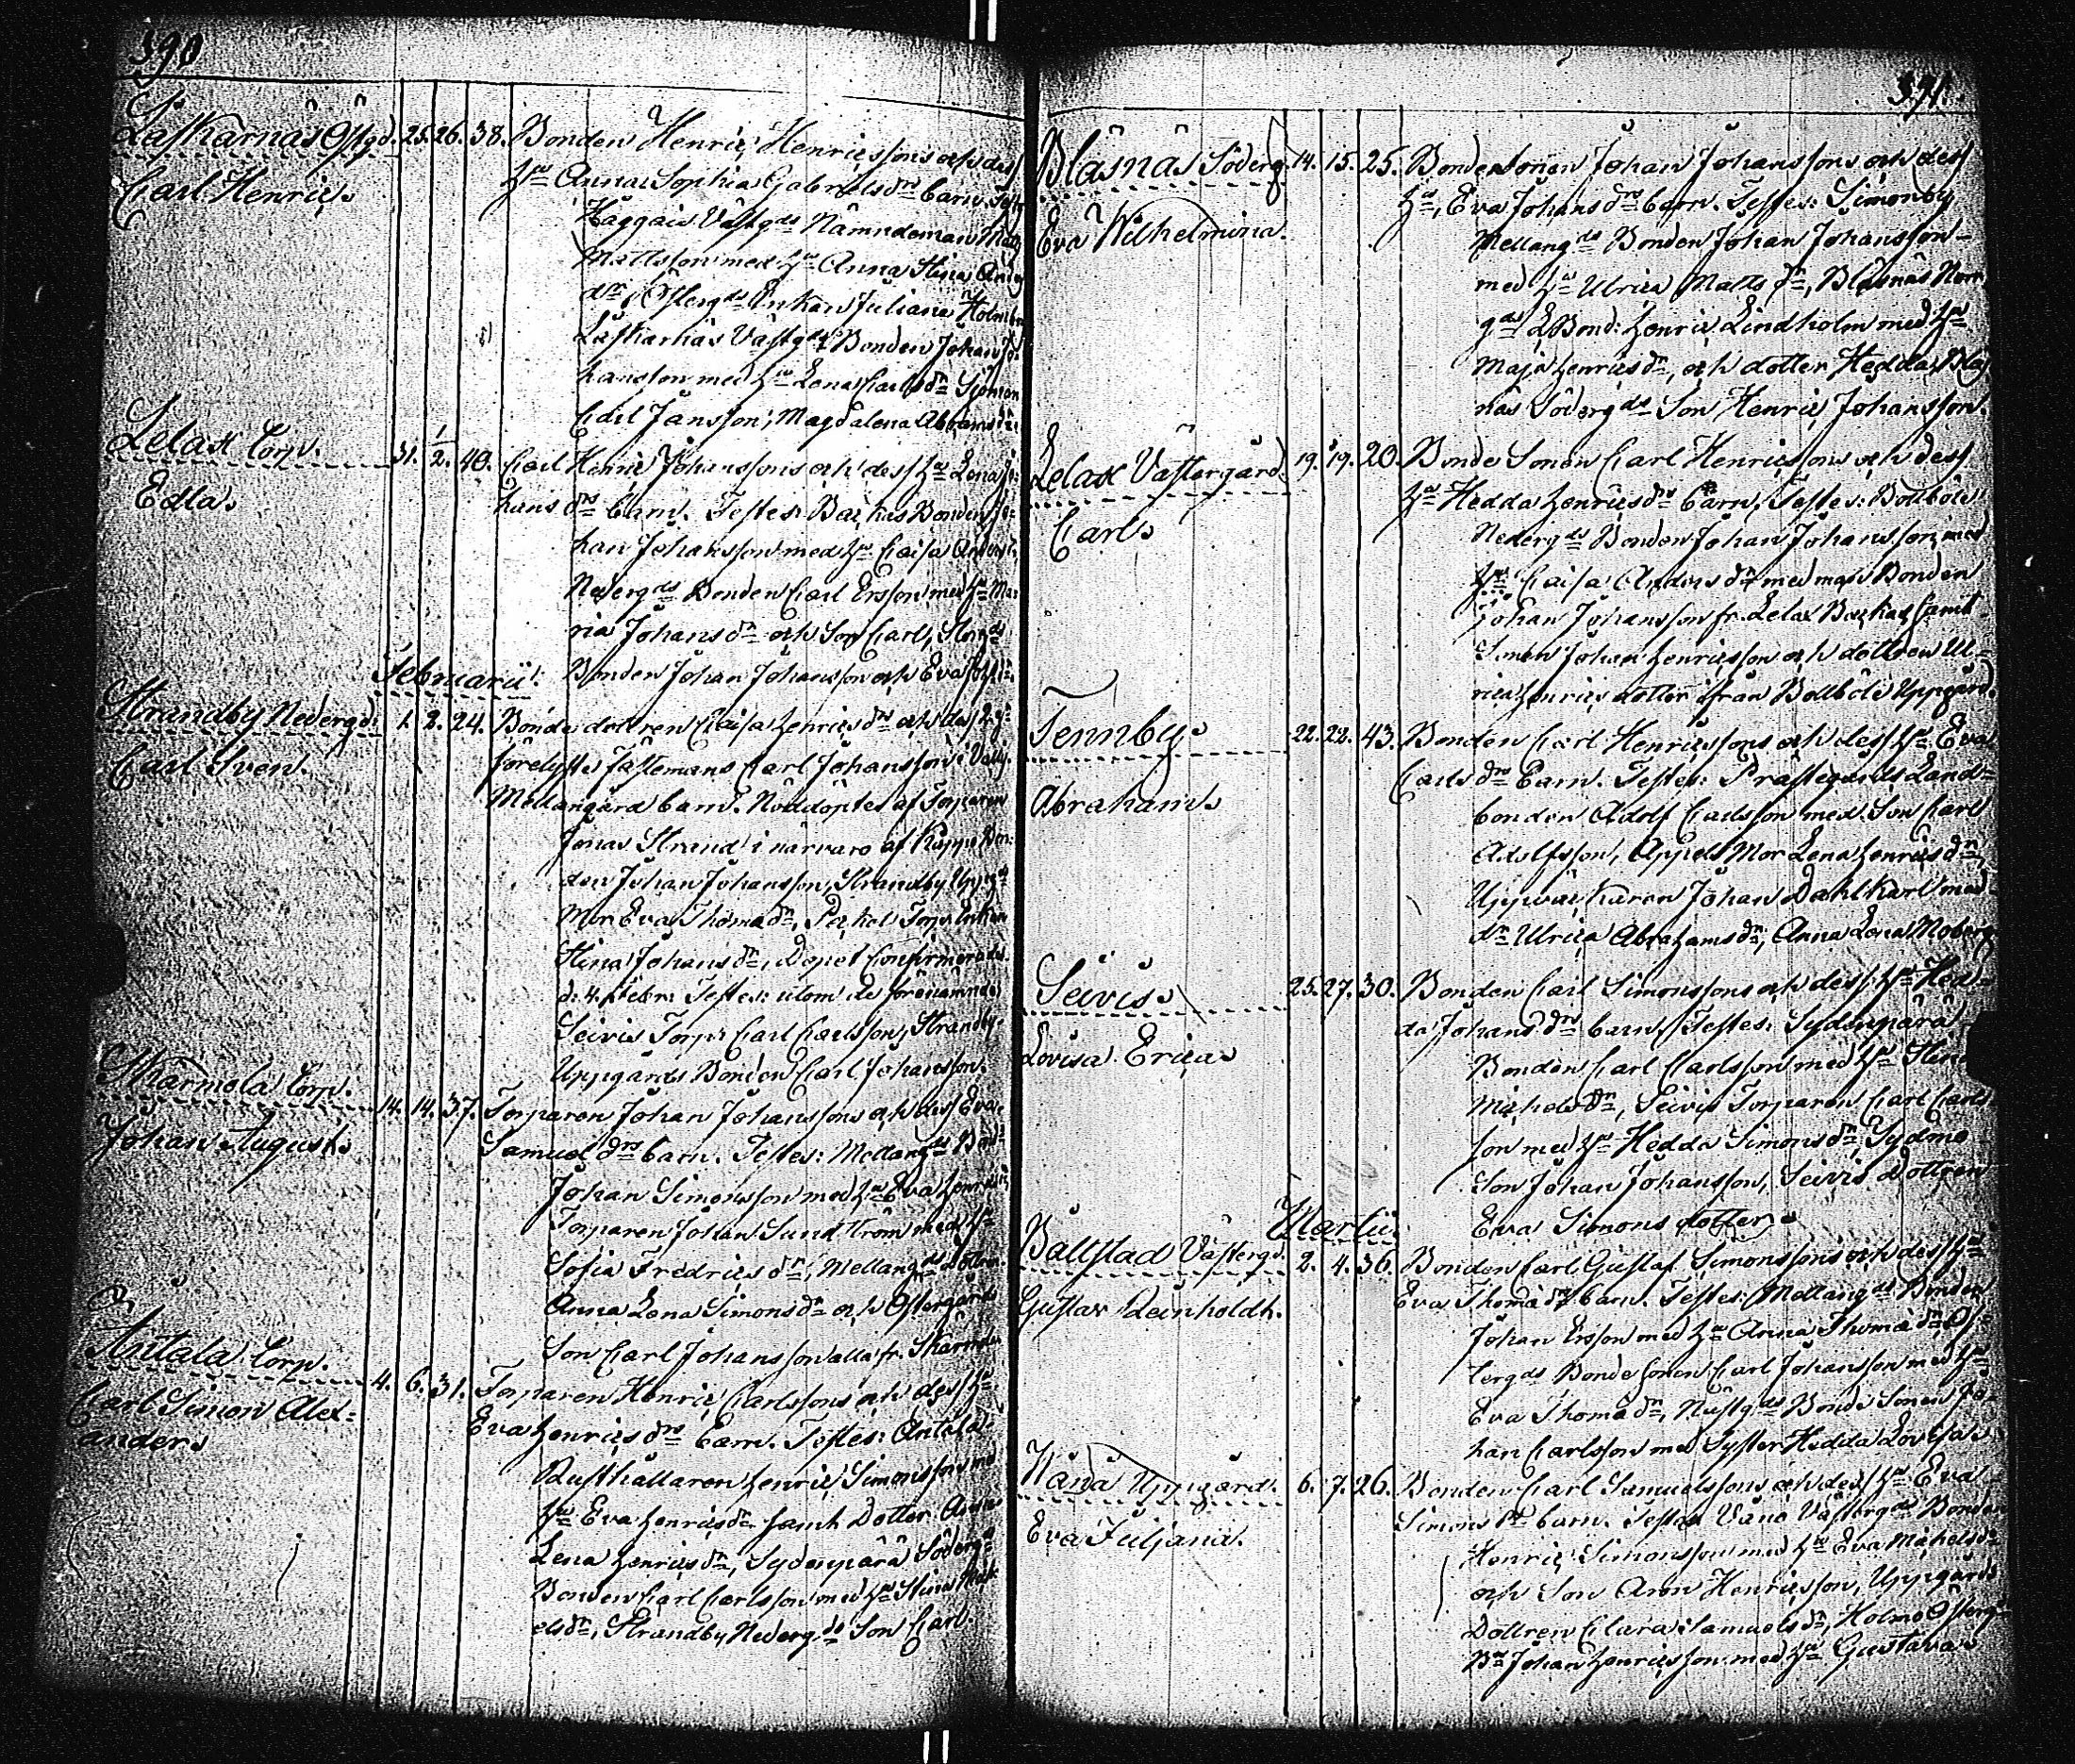 390
Laskarnäs Östgd. 25. 26. 38. Bonden Henric Henricssons och dess
Carl Henric. Hu Anna Sophia Gabrielsdrs barn.
Häggais Västgds Nämndeman
Mattsson med Hu Anna Stina
dr, Östergds Enkan Juliana
Laskarnäs Västgds Bonden Johan Jo-
hansson med Hu Lena Carlsdr
Carl Jansson, Magdalena Abramsdr.
Lelax Torp. 31. 2. 40. Carl Henric Johanssons och dess Hu Lena Jo-
Edla. hansdrs barn. Testes: Backas Bonden Jo-
han Johansson med Hu Caisa
Nedergds Bonden Carl Ersson med Hu Ma-
ria Johansdr och Son Carl,
Februarii. Bonden Johan Johansson och Eva
Strandby Nedergd. 1. 2. 24. Bonde dottren Caisa Henricsdrs och dess
Carl Sven. förelyste Fästemans Carl Johanssons i
Mellangård barn. Nöddöptes af Torparen
Jonas Strand i närvaro af Bon-
den Johan Johansson, Strandby Uppgds
Mor Eva Thomædr, Torp. Enkan
Stina Johansdr, Dopet Confirmerades
d. 4. Febr. Testes: utom de förenämnde
Seivis Torp. Carl Carlsson, Strandby
Uppgårds Bonden Carl Johansson.
Skärmola Torp. 14. 14. 37. Torparen Johan Johanssons och dess Eva
Johan August. Samuelsdrs barn. Testes: Mellangds Bond.
Johan Simonsson med Hu Eva Henricsdr,
Torparen Johan Sundström med Hu
Sofia Fredricsdr, Mellangds Dottren
Anna Lena Simonsdr och Östergårds
Son Carl Johansson alla fr. Skärmola
Antala Torp. 4. 6. 31. Torparen Henric Carlssons och dess Hu
Carl Simon Alex- Eva Henricsdrs barn. Testes: Antala
ander. Rusthållaren Henric Simonsson med
Hu Eva Henricsdr samt Dotter Anna
Lena Henricsdr, Sydänperä Södergds
Bonden Carl Carlsson med Hu Stina Mik-
elsdr, Strandby Nedergds Son Carl
391.
Blåsnäs Söderg. 14. 15. 25. Bondesonen Johan Johanssons och dess
Eva Wilhelmina. Hu, Eva Johansdrs barn. Testes: Simonby
Mellangds Bonden Johan Johansson
med Hu Ulrica Mattsdr, Blåsnäs Norr-
gds Bond: Henric Lindholm med Hu
Maja Henricsdr, och dotter Hedda, Blås-
näs Södergds Son Henric Johansson.
Lelax Västergård. 19. 19. 20. Bonde Sonen Carl Henricssons och dess
Carl. Hu Hedda Henricsdrs barn, Testes: Böttböle
Nedergds Bonden Johan Johansson med
Hu Caisa Andersdr med mera Bonden
Johan Johansson fr. Lelax Backas samt
Sonen Johan Henricsson och dottren Ul-
rica Henrics dotter ifrån Böttböle Uppgård.
Tennby. 22. 22. 43. Bonden Carl Henricssons och dess Hu Eva
Abraham. Carlsdrs barn. Testes: Prästegårds Land-
bonden Adolf Carlsson med Son Carl
Adolfsson, Appels Mor Lena Henricsdr,
Johan Dahlkarl med
dr Ulrica Abrahamsdr, Anna Lena Moberg
Seivis. 25. 27. 30. Bonden Carl Simonssons och dess Hu Hed-
Lovisa Erica. da Johansdrs barn, Testes: Sydänperä
Bonden Carl Carlsson med Hu Stina
Michelsdr, Seivis Torparen Carl Carls-
son med Hu Hedda Simonsdr, Sydmo
Son Johan Johansson, Seivis Dottren
Eva Simons dotter.
Martii.
Ballstad Västergd. 2. 4. 36. Bonden Carl Gustaf Simonssons och dess Hu
Gustav Reinholdt. Eva Thomædrs barn. Testes: Mellangds Bonden
Johan Ersson med Hu Anna Thomædr, Ös-
tergds Bonde Sonen Carl Johansson med Hu
Eva Thomædr, Bonde Sonen Jo-
han Carlsson med Syster Hedda Lovisa.
Wånå Uppgård. 6. 7. 26. Bonden Carl Samuelssons och dess Hu Eva
Eva Juliana. Simonsdrs barn. Testes Vånå Västergds Bonden
Henric Simonsson med Hu Eva Michelsdr
och Son Aron Henricsson, Uppgårds
Dottren Clara Samuelsdr, Holmo Österg.
Bn Johan Henricsson med Hu Gustava